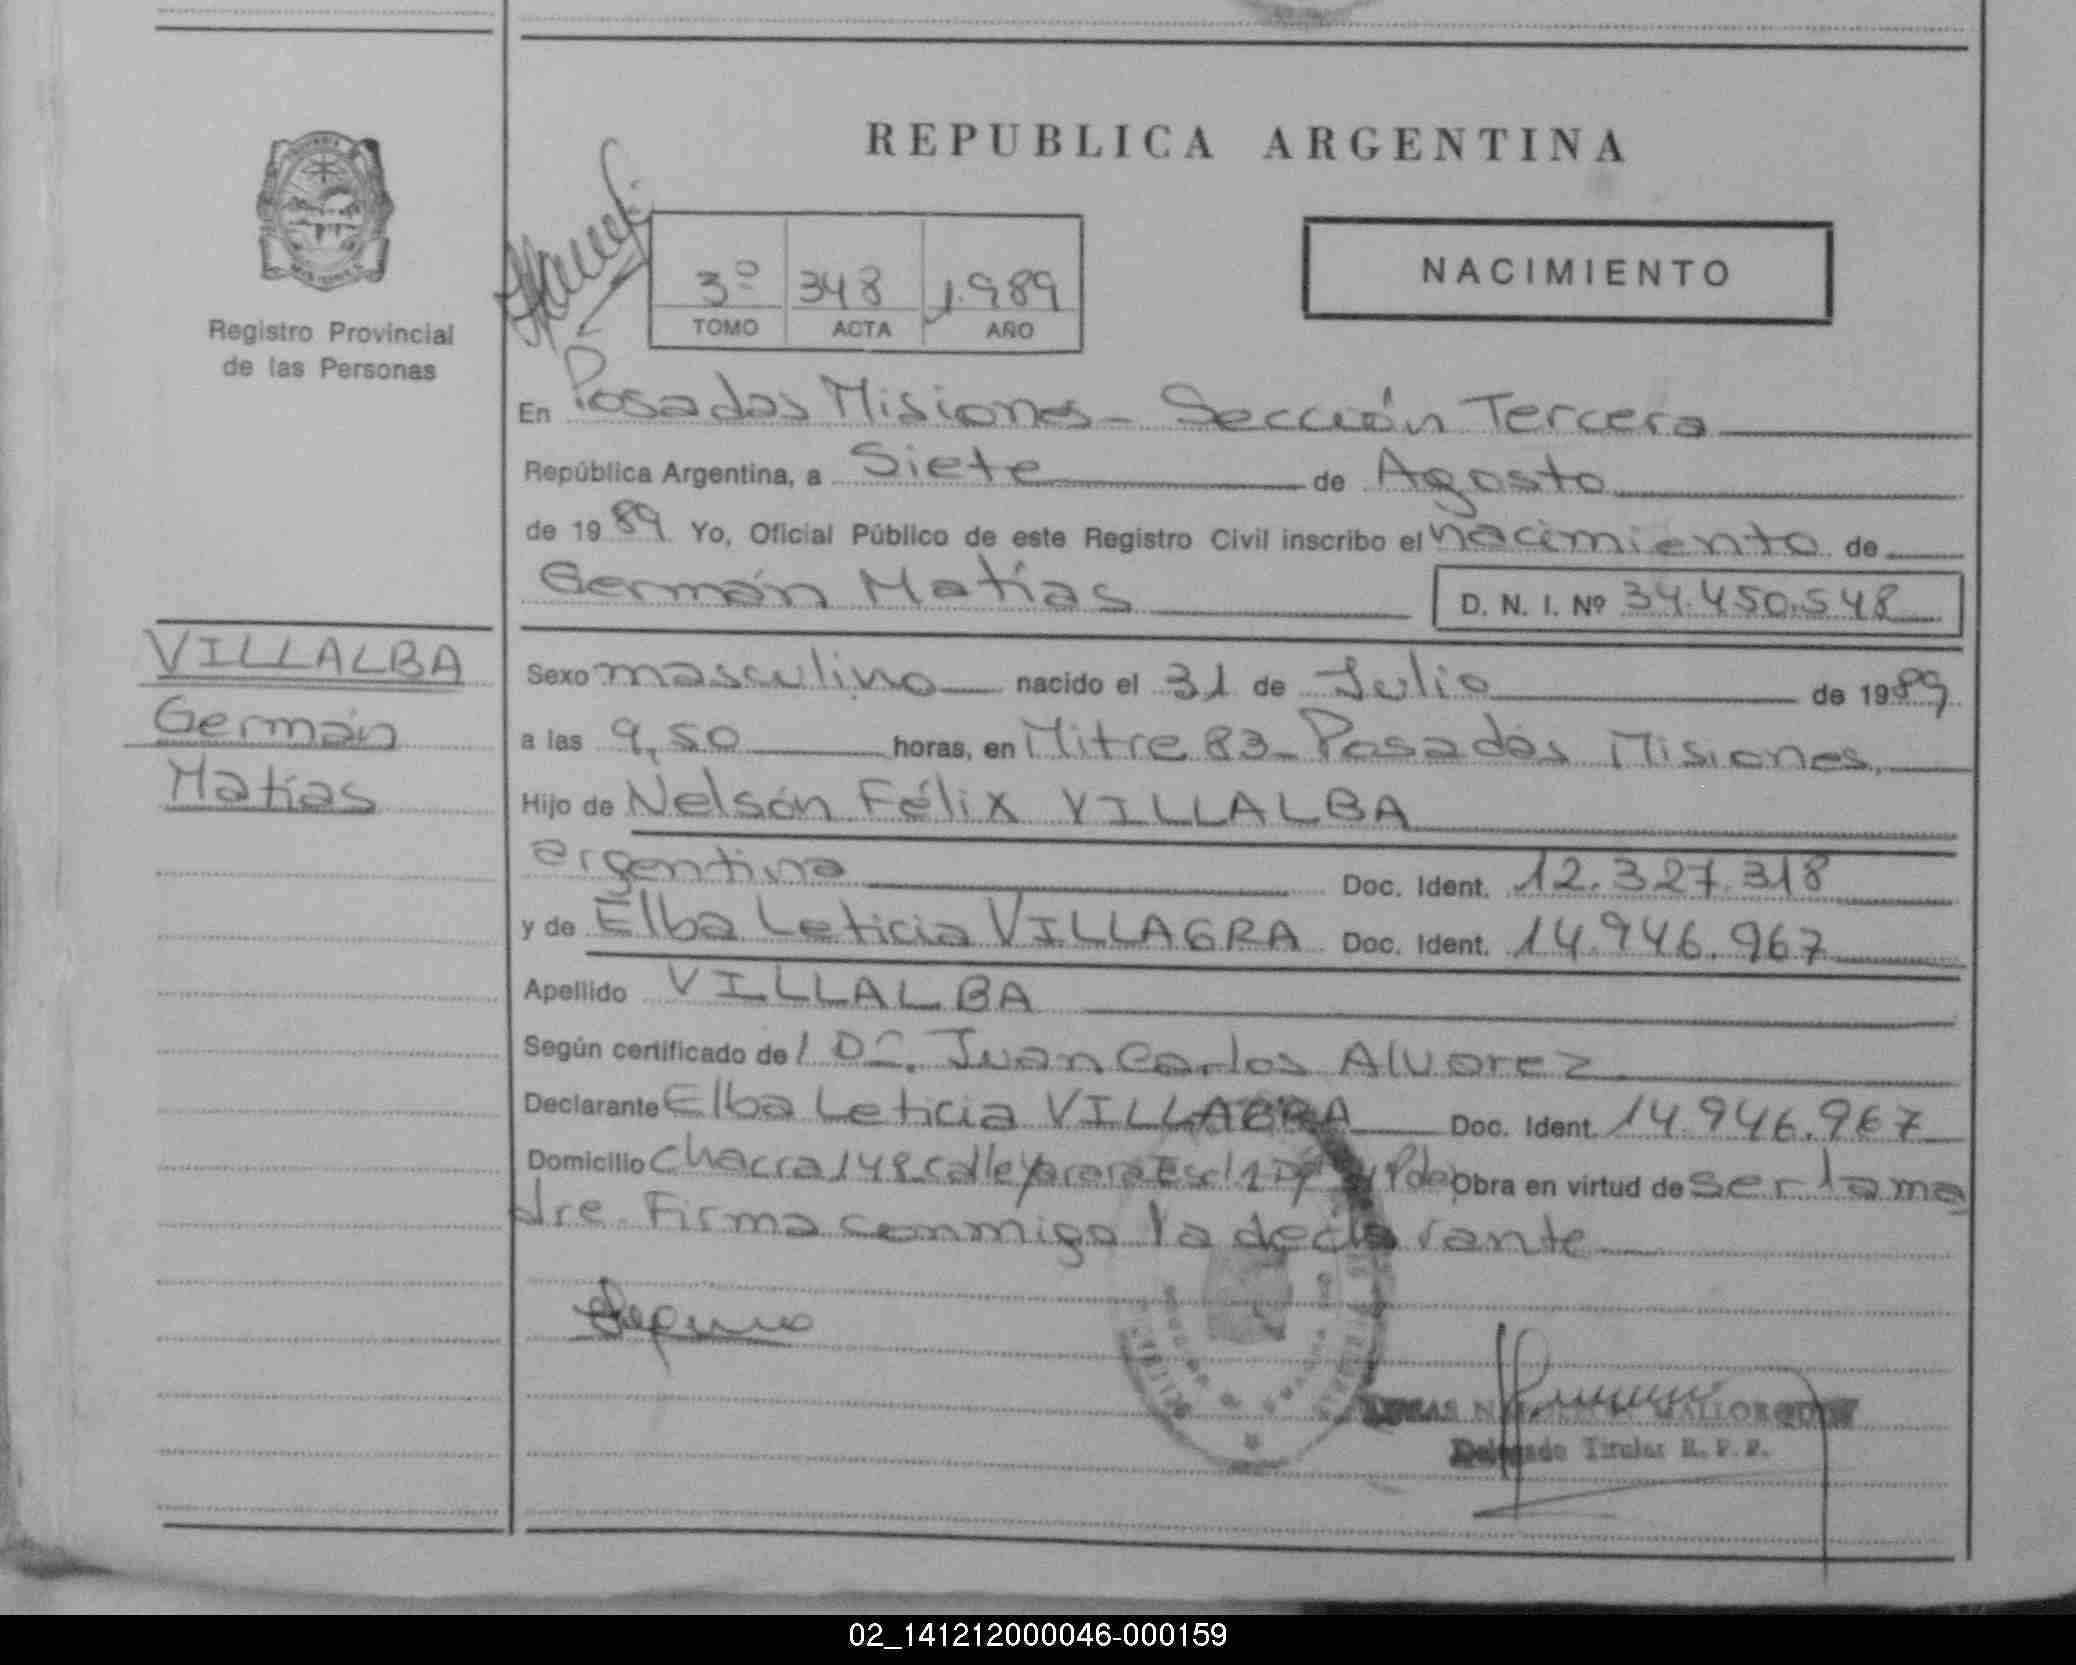 REPUBLICA ARGENTINA
NACIMIENTO
3º 348 1.989
TOMO ACTA AÑO
Registro Provincial
de las Personas
En Posadas Misiones - Sección Tercera
República Argentina, a Siete de Agosto
de 1989 Yo, Oficial Público de este Registro Civil inscribo el nacimiento de
Germán Matías D. N. I. Nº 34.450.548
VILLALBA
Germán
Matías
Sexo masculino nacido el 31 de Julio de 1989
a las 9,50 horas, en Mitre 83 - Posadas Misiones.
Hijo de Nelsón Félix VILLALBA
argentina Doc. Ident. 12.327.318
y de Elba Leticia VILLAGRA Doc. Ident. 14.946.967
Apellido VILLALBA
Según certificado del Dr. Juan Carlos Alvarez
Declarante Elba Leticia VILLAGRA Doc. Ident. 14.946.967
Domicilio Chacra 148 calle Obra en virtud de ser la ma
dre. Firma conmigo la declarante
Delegado Titular R. P. P.
02_141212000046-000159